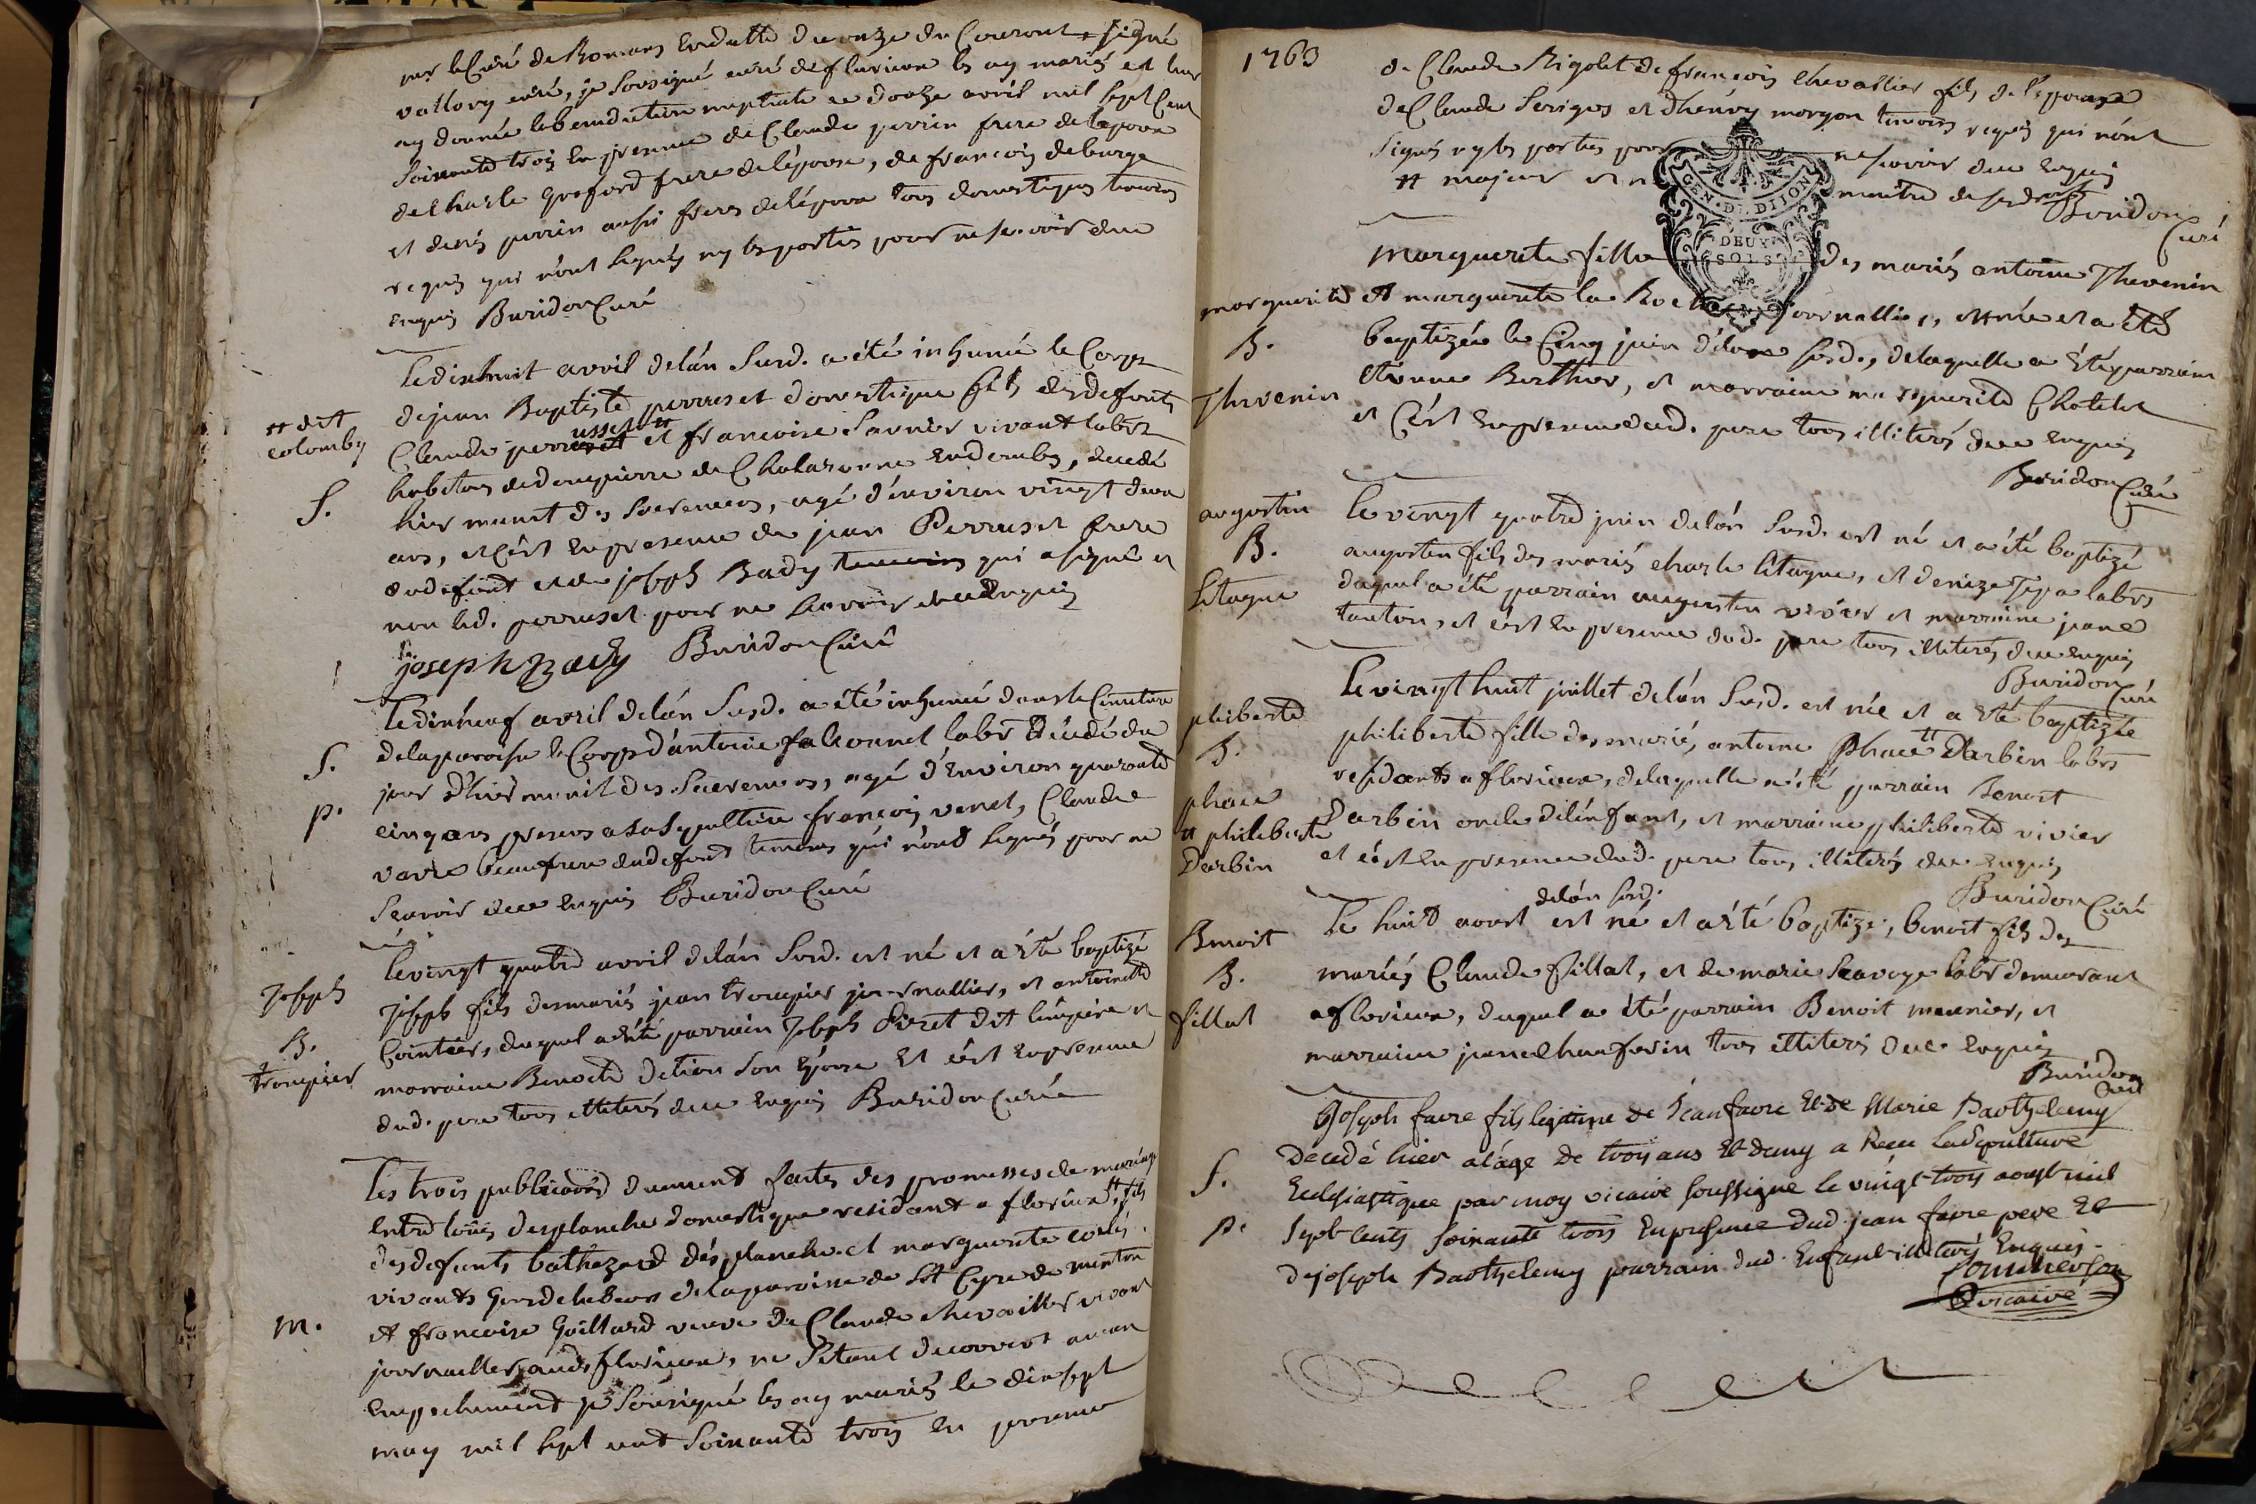 par le Curé de Romans en datte du onze du Courant signé
vallory curé, je sousigné curé de flurieux les ay mariés et leur
ay donné la benediction nuptiale ce douze avril mil sept Cent
soixante trois en presence de Claude perrin frere de l'epoux
de Charle frere de l'épouse, de françois deburge
et denis perrin aussi freres de l'époux tous domestiques temoins
requis qui n'ont signés ny les parties pour ne scavoir de ce
enquis Buridon Curé
Le dixhuit avril de l'án susd. a été inhumé le Corps
de jean Baptiste perruset domestique fils des defunts
tt dit
colomby
Claude perrusset tt et francoise Saunier vivant labrs
habitans de dompierre de Chalaronne en dombes, decedé
S.
hier munit des sacremens, agé d'environ vingt deux
ans, et c'ést en presence de jean Perruset frere
dud defunt et de joseph Bady temoins qui a signé et
non led. perruset pour ne scavoir de ce enquis
joseph Bady Buridon Curé
Le dixneuf avril de l'án susd. a été inhumé dans le Cimetiere
de la paroisse le Corps d'antoine falconnet labr décedé du
S.
jour d'hier munit des sacremens, agé d'environ quarante
p.
cinq ans presens a sa sepulture françois venet, Claude
varre beaufrere dud defunt temoins qui n'ont signés pour ne
scavoir de ce enquis Buridon Curé
Le vingt quatre avril de l'án susd. est né et a été baptizé
Joseph
Joseph fils des mariés jean troupier journallier, et antoinette
B.
Cointier, duquel a été parrain Joseph Piret dit l'inpire et
troupier
marraine Benoite detion son epouse et c'ést en presence
dud. pere tous illiterés de ce enquis Buridon Curé
Les trois publications duement faites des promesses de mariage
entre loüis desplanche domestique residant a flurieux tt, fils
des defunts balthazard désplanche et marguerite
vivants Grordelabeur de la paroisse de St Cyre de menton
m.
et francoise Guillard veuve de Claude chevallier vivant
journallier aud. flurieux, ne s'etant decouvert aucun
empechement je sousigné les ay mariés le dixsept
may mil sept cent soixante trois en presence
1763
de Claude Rigolet de françois chevallier fils de l'epouse
de Claude Serigos et d'henry morgon temoins requis qui n'ont
signés ny les parties pour ne scavoir de ce enquis
tt majeur et maitre de ses droits
Buridon Curé
GEN. DE DIJON
DEUX
SOLS
Marguerite fille des mariés antoine Thevenin
marguerite
et marguerite la Roche journalliers, est née et a été
B.
baptizée le Cinq juin de l'án susd., de laquelle a été parrain
Thevenin
etienne Berthier, et marraine marguerite Chatelet
et c'ést en presence dud. pere tous illiterés de ce enquis
Buridon Curé
augustin
Le vingt quatre juin de l'án susd. est né et a été baptizé
B.
augustin fils des mariés charle litaque, et denize Tepa labrs
Litaque
duquel a été parrain augustin vivier et marraine jeane
tanton, et c'ést en presence dud. pere tous illiterés de ce enquis
Buridon Curé
Le vingt huit juillet de l'án susd. est née et a été baptizée
philiberte
philiberte fille des mariés antoine Phace tt Darbin labrs
B.
residants a flurieux, de laquelle a été parrain Benoit
phace
tt philiberte
Darbin oncle de l'énfant, et marraine philiberte vivier
Darbin
et c'ést en presence dud. pere tous illiterés de ce enquis
Buridon Curé
de l'án susd.
Benoit
Le huit aoust est né et a été baptizé, benoit fils des
B.
mariés Claude fillat, et de marie Scavoye labrs demeurant
fillat
a flurieux, duquel a été parrain Benoit meunier, et
marraine jeane chanforin tous illiterés de ce enquis
Buridon Curé
Joseph favre fils legitime de Jean favre Et de Marie Barthelemy
S.
decedé hier a l'áge de trois ans Et demy a Receu la Sepulture
Eclesiastique par moy vicaire soussigné le vingt trois aoust mil
p.
sept cents soixante trois En presence dud jean favre pere Et
de joseph Barthelemy parrain dud. Enfant illiterés Enquis.
Commerson
vicaire